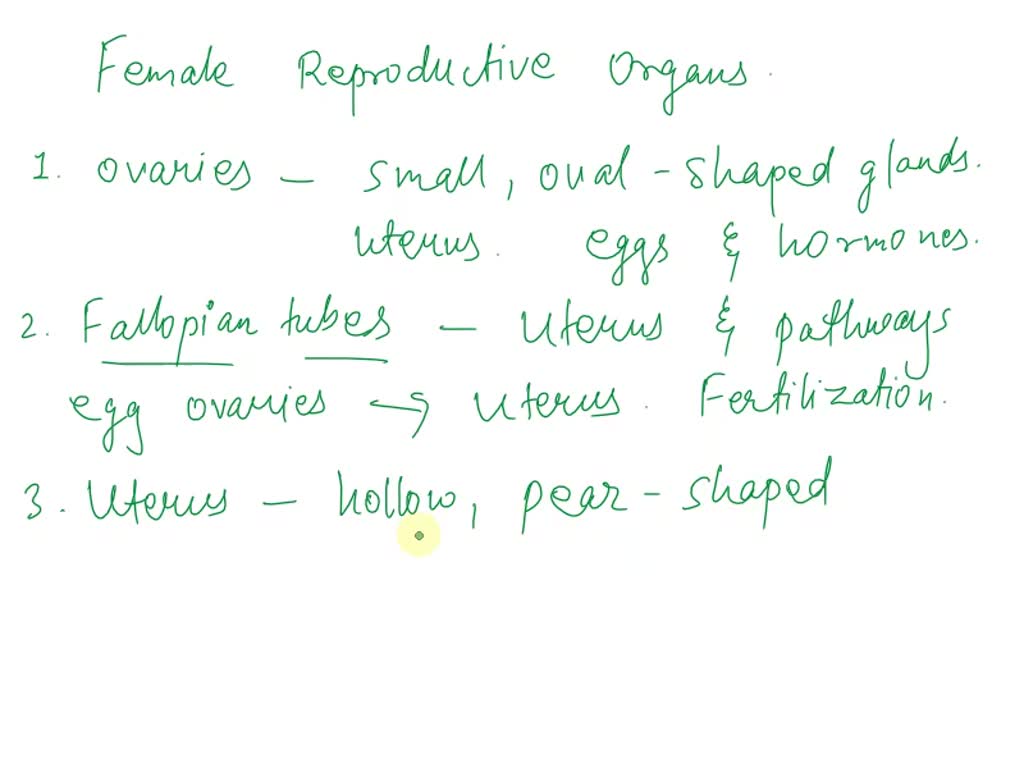 Female Reproductive Organs.
1. Ovaries - small, oval-shaped glands.
uterus. eggs & hormones.
2. Fallopian tubes - Uterus & pathways
egg ovaries → Uterus. Fertilization.
3. Uterus - hollow, pear-shaped